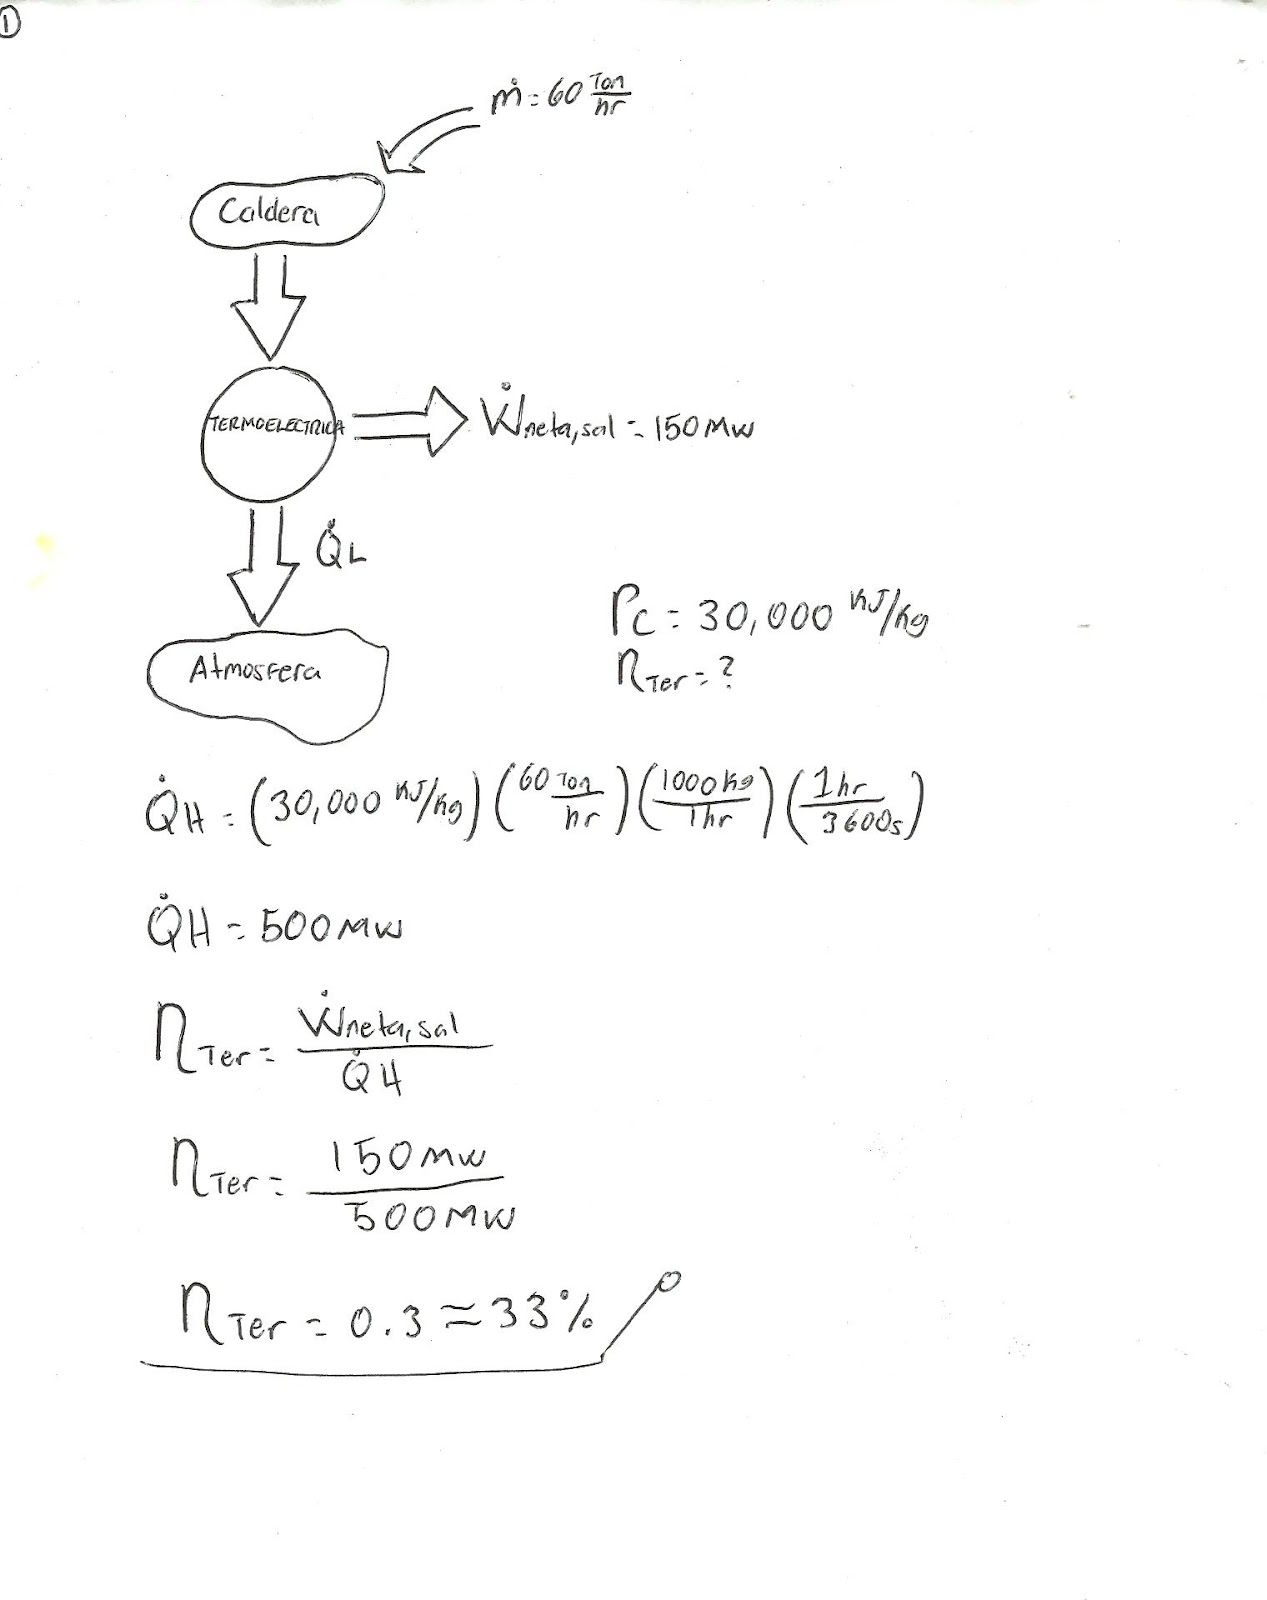 ①
ṁ = 60 Ton/hr
Caldera
TERMOELECTRICA
Ẇneta,sal = 150 MW
Q̇L
Atmosfera
Pc = 30,000 KJ/Kg
ηTer = ?
Q̇H = (30,000 KJ/Kg) (60 Ton/hr) (1000 Kg/1hr) (1hr/3600s)
Q̇H = 500 MW
ηTer = Ẇneta,sal/Q̇H
ηTer = 150 MW/500 MW
ηTer = 0.3 ≈ 33%